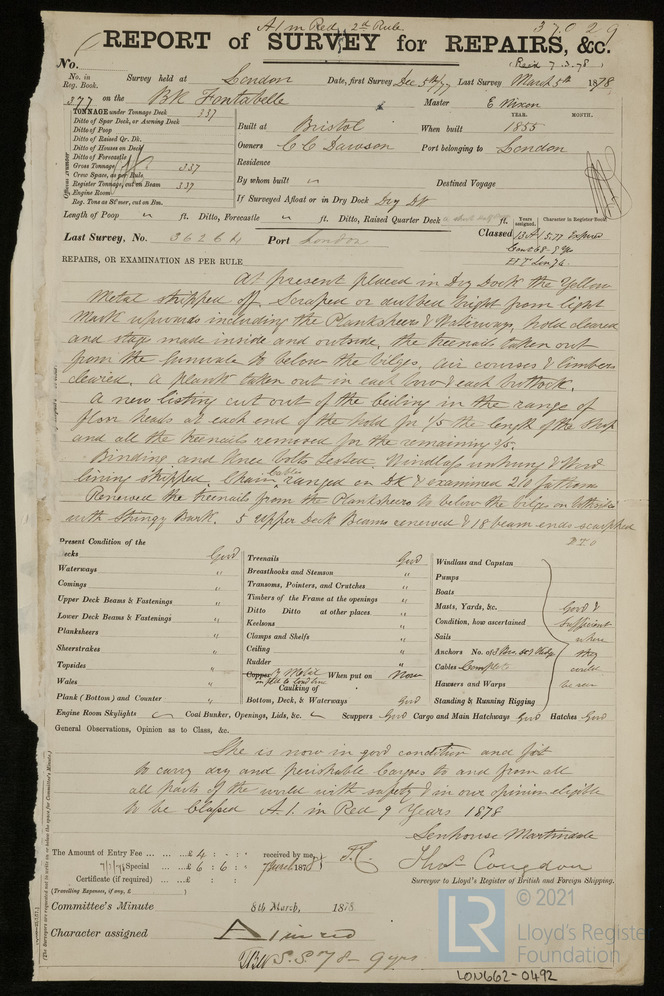 A1 in Red, 2nd Rule
37029
REPORT of SURVEY for REPAIRS, &c.
(Recd 7.3.78)
No.
No. in Reg. Book. Survey held at London Date, first Survey Dec 5th/77 Last Survey March 5th 1878
377 on the Bk Fontabelle Master E Nixon
TONNAGE under Tonnage Deck 337
Ditto of Spar Deck, or Awning Deck
Ditto of Poop
Ditto of Raised Qr. Dk.
Ditto of Houses on Deck
Ditto of Forecastle
Gross Tonnage 337
Crew Space, as per Rule
Register Tonnage, cut on Beam 337
Engine Room
Reg. Tons as St'mer, cut on Bm.
Official Number
YEAR. MONTH.
Built at Bristol When built 1855
Owners C C Dawson Port belonging to London
Residence
By whom built " Destined Voyage
If Surveyed Afloat or in Dry Dock Dry Dk
Length of Poop " ft. Ditto, Forecastle " ft. Ditto, Raised Quarter Deck ft.
Years assigned. Character in Register Book
Last Survey, No. 36264 Port London Classed 13 A1 5.77 Expired
REPAIRS, OR EXAMINATION AS PER RULE
At present placed in Dry Dock the Yellow
Metal stripped off, Scraped or dubbed bright from light
Mark upwards including the Planksheers & Waterways, hold cleared
and stage made inside and outside, the treenails taken out
from the Gunwale to below the bilges, air courses & limbers
cleared. A plank taken out in each bow & each buttock.
A new listing cut out of the ceiling in the range of
floor heads at each end of the hold for 1/5 the length of the Ship
and all the treenails removed for the remaining 3/5.
Binding and Knee bolts tested. Windlass unhung & Wood
lining stripped, Chain Cables ranged on Dk & examined 210 fathoms
Renewed the treenails from the Planksheers to below the bilge
with Stringy Bark. 5 upper Deck Beams renewed & 18 beam ends scarphed
P.T.O
Present Condition of the
Decks Good
Waterways "
Comings "
Upper Deck Beams & Fastenings "
Lower Deck Beams & Fastenings "
Planksheers "
Sheerstrakes "
Topsides "
Wales "
Plank (Bottom) and Counter "
Treenails Good
Breasthooks and Stemson "
Transoms, Pointers, and Crutches "
Timbers of the Frame at the openings "
Ditto Ditto at other places "
Keelsons "
Clamps and Shelfs "
Ceiling "
Rudder "
Copper Y Metal When put on Now
Caulking of
Bottom, Deck, & Waterways Good
Windlass and Capstan
Pumps
Boats
Masts, Yards, &c.
Condition, how ascertained
Sails
Anchors No. of
Cables Complete
Hawsers and Warps
Standing & Running Rigging
Good &
sufficient
where
they
could
be seen
Engine Room Skylights " Coal Bunker, Openings, Lids, &c. " Scuppers Good Cargo and Main Hatchways Good Hatches Good
General Observations, Opinion as to Class, &c.
She is now in good condition and fit
to carry dry and perishable Cargoes to and from all
all parts of the world with safety & in our opinion eligible
to be Classed A.1. in Red 9 Years 1878
Senhouse Martindale
Thos Congdon
Surveyor to Lloyd's Register of British and Foreign Shipping.
The Amount of Entry Fee £ 4 : - : - received by me,
Special £ 6 : 6 : -
Certificate (if required) £ : :
(Travelling Expenses, if any, £ )
Committee's Minute 8th March, 1878
Character assigned A 1 in red
S.S. 78 - 9 yrs
© 2021
LR
Lloyd's Register
Foundation
LON662-0492